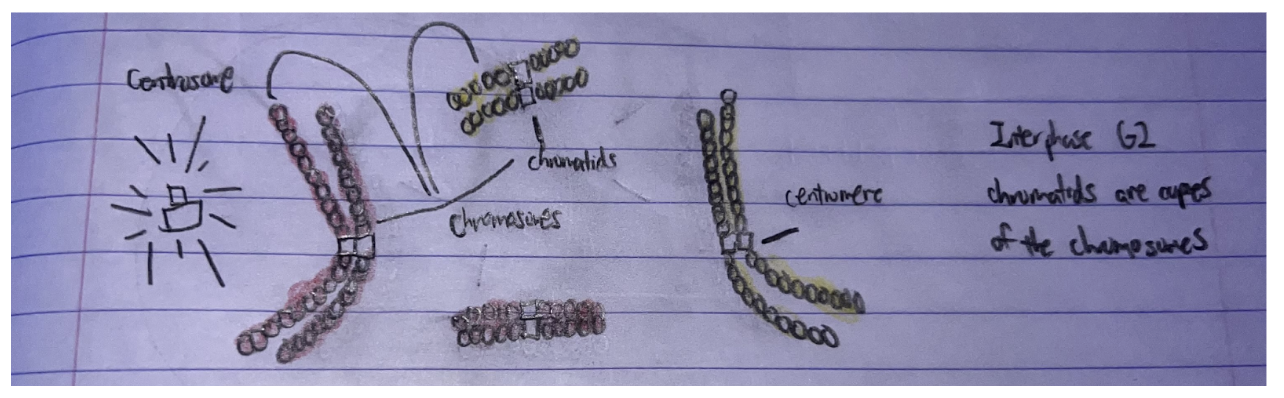 Centrosome
chromatids
chromosomes
centromere
Interphase G2
chromatids are copies
of the chromosomes